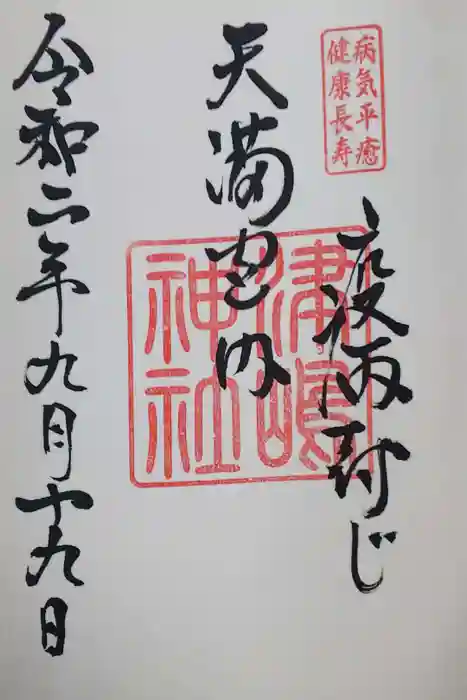 病気平癒
健康長寿
疫病封じ
津嶋
神社
天満宮内
令和二年九月十九日